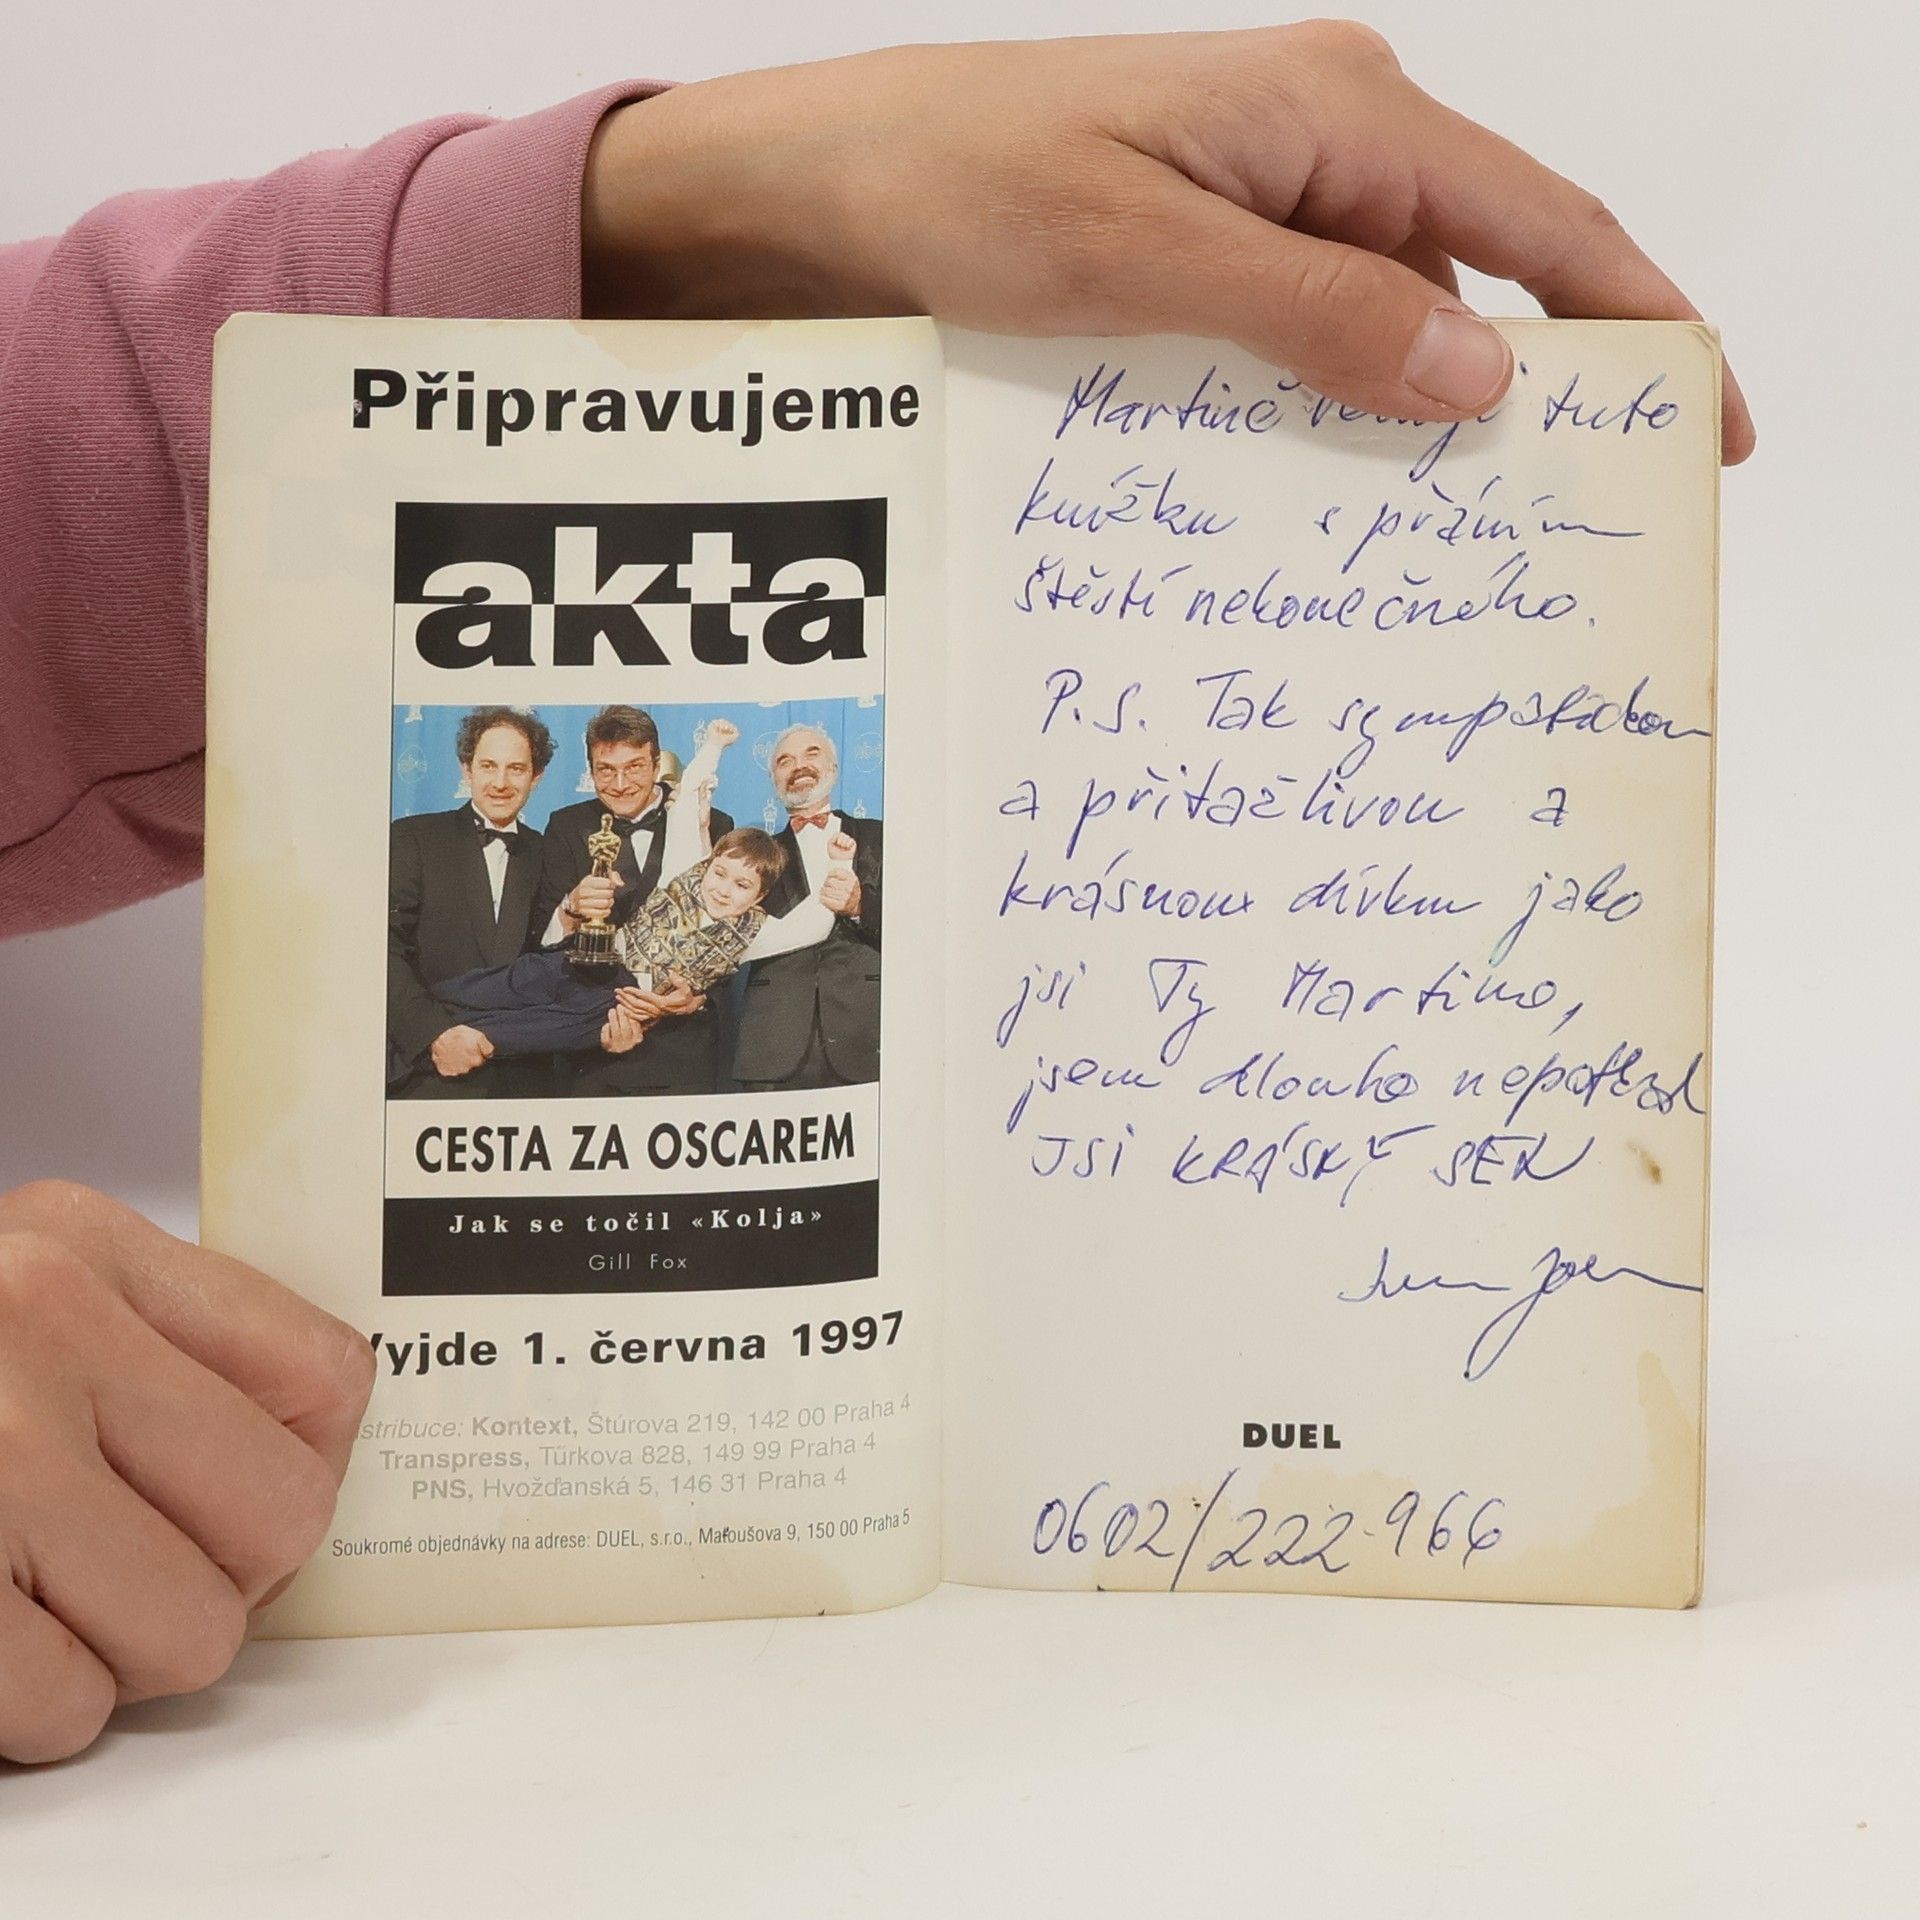 Připravujeme
akta
CESTA ZA OSCAREM
Jak se točil «Kolja»
Gill Fox
Vyjde 1. června 1997
Kontext, Štúrova 219, 142 00 Praha 4
Transpress, Türkova 828, 149 99 Praha 4
PNS, Hvožďanská 5, 146 31 Praha 4
Soukromé objednávky na adrese: DUEL, s.r.o., Maťoušova 9, 150 00 Praha 5
Martině tuto
knížku s přáním
štěstí nekonečného.
P.S. Tak sympatickou
a přitažlivou a
krásnou dívku jako
jsi Ty Martino,
jsem dlouho nepotkal
JSI KRÁSNÝ SEN
DUEL
0602/222-966